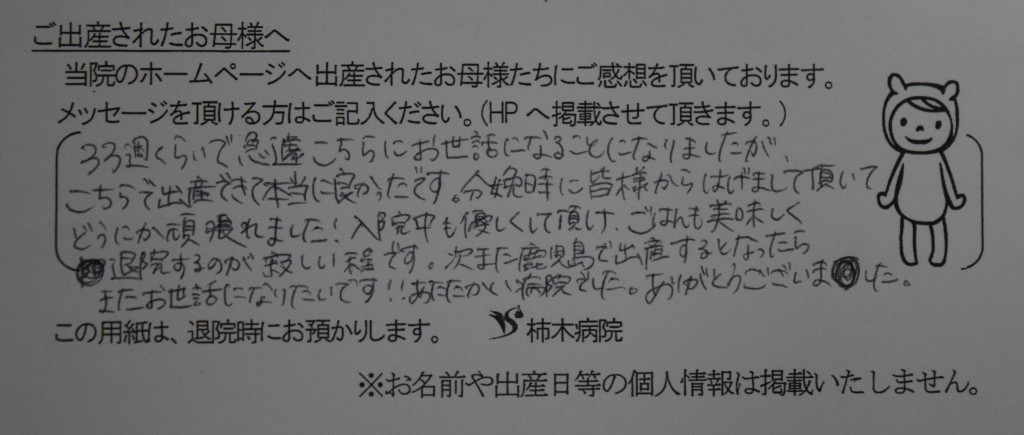 ご出産されたお母様へ
当院のホームページへ出産されたお母様たちにご感想を頂いております。
メッセージを頂ける方はご記入ください。（HPへ掲載させて頂きます。）
33週くらいで急遽こちらにお世話になることになりましたが、
こちらで出産できて本当に良かったです。分娩時に皆様からはげまして頂いて
どうにか頑張れました！入院中も優しくして頂け、ごはんも美味しく
退院するのが寂しい程です。次また鹿児島で出産するとなったら
またお世話になりたいです!!あたたかい病院でした。ありがとうございました。
この用紙は、退院時にお預かりします。 柿木病院
※お名前や出産日等の個人情報は掲載いたしません。